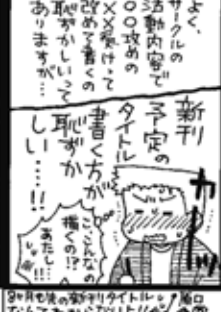 よく、
サークルの
活動内容で
○○攻めの
××受けって
改めて書くの
恥ずかしいって
ありますが…
新刊
予定の
タイトル
書く方が
恥ずか
しい…!!
カーッ
こ、こんなの
描くの!?
あたし…
!!!